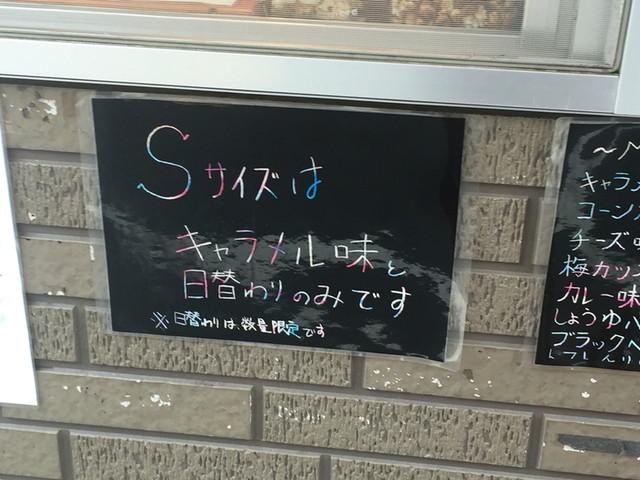 Sサイズは
キャラメル味と
日替わりのみです
※日替わりは、数量限定です
キャラ
コーン
チーズ味
梅カッ
カレー味
しょうゆ
ブラック